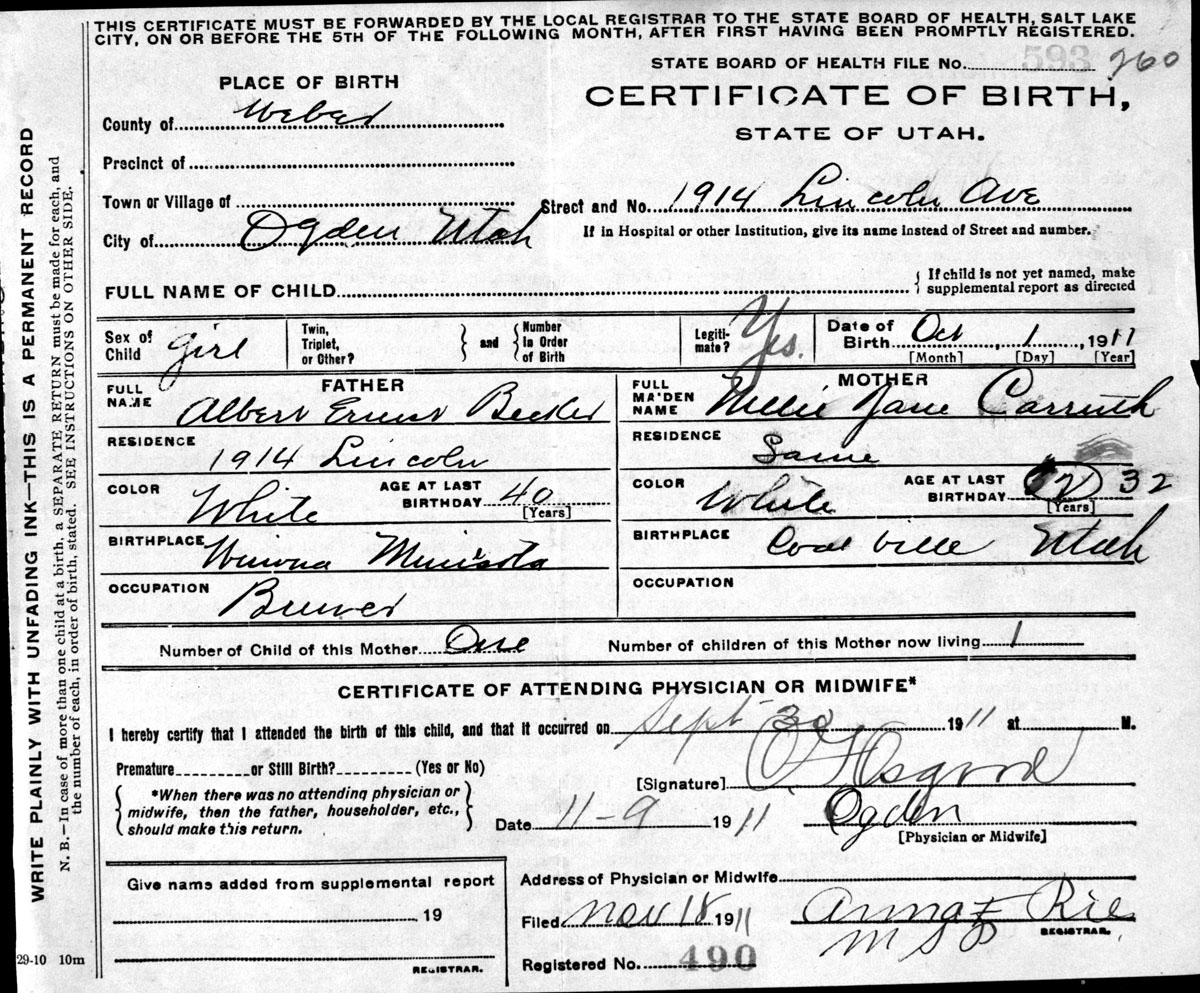 THIS CERTIFICATE MUST BE FORWARDED BY THE LOCAL REGISTRAR TO THE STATE BOARD OF HEALTH, SALT LAKE
CITY, ON OR BEFORE THE 5TH OF THE FOLLOWING MONTH, AFTER FIRST HAVING BEEN PROMPTLY REGISTERED.
STATE BOARD OF HEALTH FILE No. 593 260
PLACE OF BIRTH
CERTIFICATE OF BIRTH,
STATE OF UTAH.
County of Weber
Precinct of
Town or Village of
Street and No. 1914 Lincoln Ave
City of Ogden Utah
If in Hospital or other Institution, give its name instead of Street and number.
FULL NAME OF CHILD
If child is not yet named, make
supplemental report as directed
Sex of Child girl
Twin, Triplet, or Other?
and
Number in Order of Birth
Legitimate? Yes.
Date of Birth Oct 1 1911
[Month] [Day] [Year]
FATHER
FULL NAME Albert Ernest
RESIDENCE 1914 Lincoln
COLOR White
AGE AT LAST BIRTHDAY 40
[Years]
BIRTHPLACE Winona Minisota
OCCUPATION Brewer
MOTHER
FULL MAIDEN NAME Nellie Jane Carruth
RESIDENCE Same
COLOR White
AGE AT LAST BIRTHDAY 32
[Years]
BIRTHPLACE Coal ville Utah
OCCUPATION
Number of Child of this Mother One
Number of children of this Mother now living 1
CERTIFICATE OF ATTENDING PHYSICIAN OR MIDWIFE*
I hereby certify that I attended the birth of this child, and that it occurred on Sept 30 1911 at M.
Premature or Still Birth? (Yes or No)
[Signature] Osgood
*When there was no attending physician or
midwife, then the father, householder, etc.,
should make this return.
Date 11-9 1911
Ogden
[Physician or Midwife]
Give name added from supplemental report
19
REGISTRAR.
Address of Physician or Midwife
Filed Nov 18 1911
Anna F
REGISTRAR.
Registered No. 490
29-10 10m
WRITE PLAINLY WITH UNFADING INK—THIS IS A PERMANENT RECORD
N. B.—In case of more than one child at a birth, a SEPARATE RETURN must be made for each, and
the number of each, in order of birth, stated. SEE INSTRUCTIONS ON OTHER SIDE.